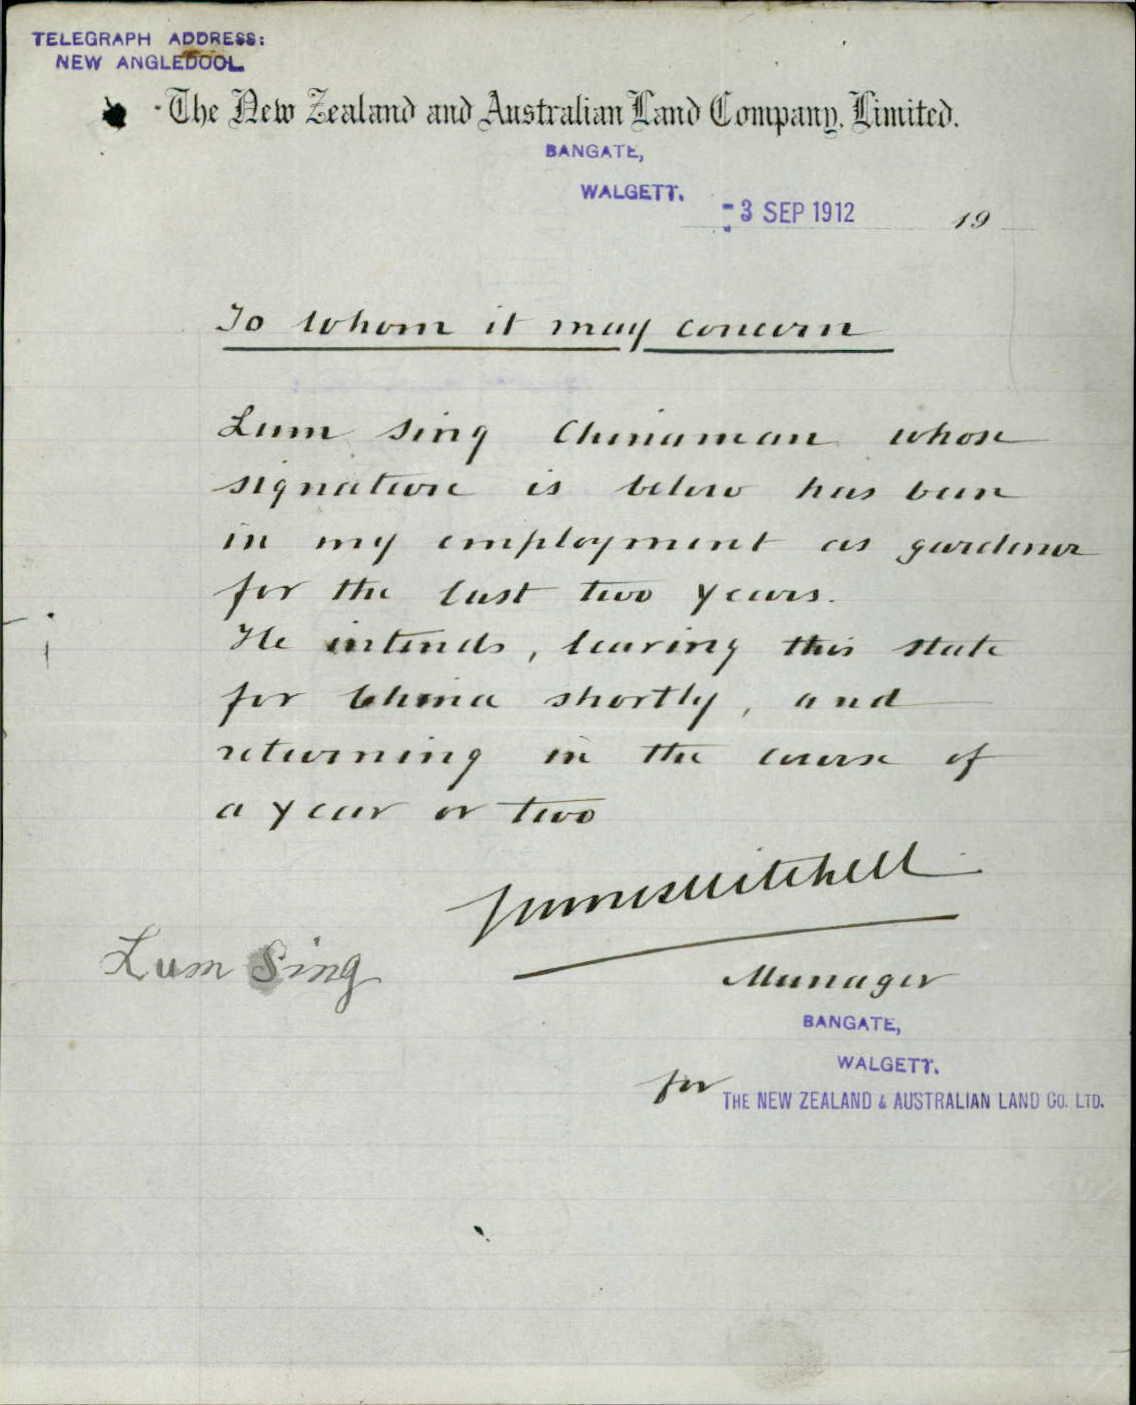 TELEGRAPH ADDRESS:
NEW ANGLEDOOL.
The New Zealand and Australian Land Company, Limited.
BANGATE,
WALGETT.
-3 SEP 1912 19
To whom it may concern
Lum Sing Chinaman whose
signature is below has been
in my employment as gardener
for the last two years.
He intends, leaving this state
for China shortly, and
returning in the course of
a year or two
James Mitchell
Lum Sing
Manager
BANGATE,
WALGETT.
for THE NEW ZEALAND & AUSTRALIAN LAND CO. LTD.